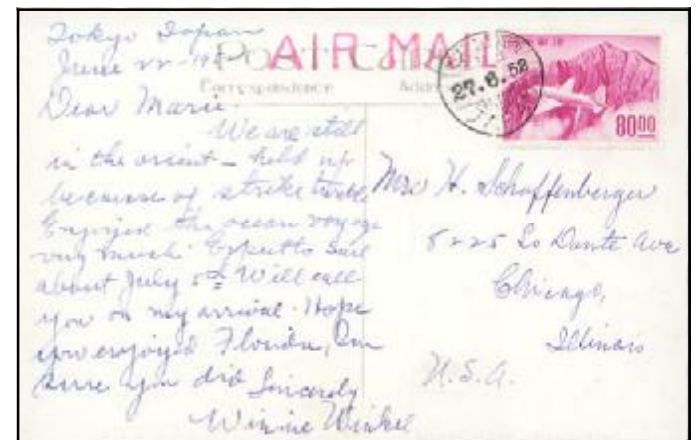 Tokyo Japan
June 22 - 195
Post Card
AIR MAIL
Correspondence
Address
27.6.52
8000
Dear Marie.
We are still
in the orient - held up
because of strike trouble
Enjoyed the ocean voyage
very much. Expect to sail
about July 5th Will call
you on my arrival. Hope
you enjoyed Florida, Im
sure you did Sincerely
Winnie Winkel
Mrs H. Schoffenberger
8225 So Dante Ave
Chicago,
Illinois
U.S.A.